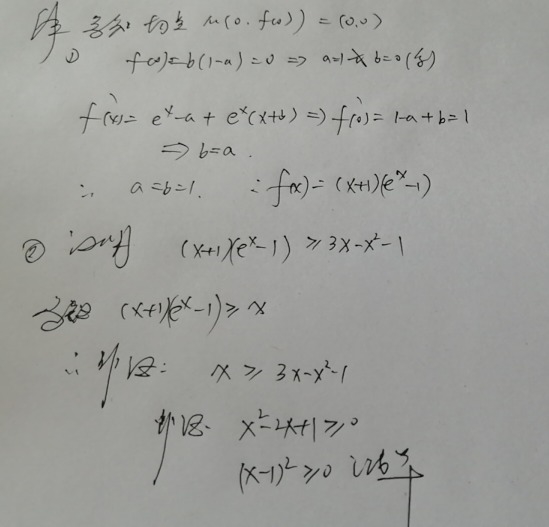 解 易知 切点 M(0, f(0)) = (0,0)
① f(0)=b(1-a)=0 ⇒ a=1 或 b=0(舍)
f'(x)= e^x-a + e^x(x+b) ⇒ f'(0)=1-a+b=1
⇒ b=a.
∴ a=b=1. ∴ f(x)=(x+1)(e^x-1)
② 证明 (x+1)(e^x-1) ≥3x-x²-1
(x+1)(e^x-1)≥x
∴ 即证: x ≥ 3x-x²-1
即证: x²-2x+1≥0
(x-1)²≥0